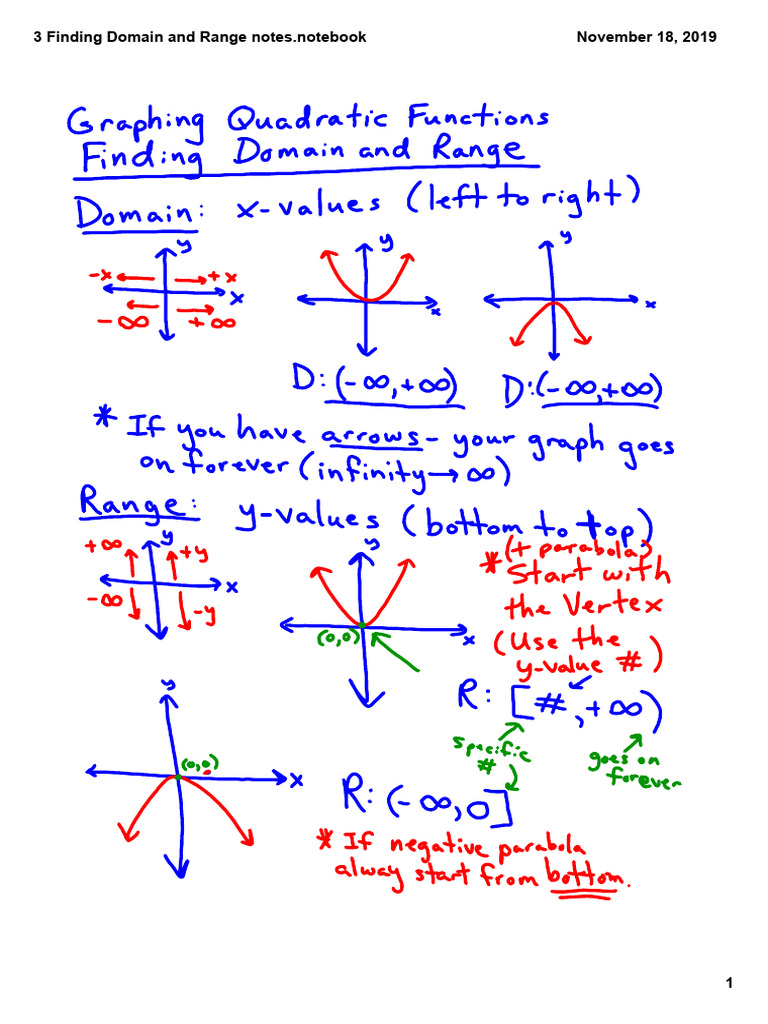 3 Finding Domain and Range notes.notebook
November 18, 2019
Graphing Quadratic Functions
Finding Domain and Range
Domain: x-values (left to right)
y
-x
+x
x
-∞
+∞
y
x
y
x
D: (-∞,+∞)
D:(-∞,+∞)
* If you have arrows - your graph goes
on forever (infinity→∞)
Range: y-values (bottom to top)
+∞
y
+y
x
-∞
-y
y
(0,0)
x
(+ parabola)
* Start with
the Vertex
(Use the
y-value #)
R: [#,+∞)
specific
#
goes on
forever
y
(0,0)
x
R: (-∞,0]
* If negative parabola
alway start from bottom.
1